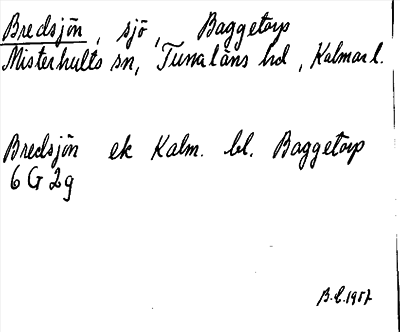 Bredsjön, sjö, Baggetorp
Misterhults sn, Tunaläns hd, Kalmar l.
Bredsjön ek Kalm. bl. Baggetorp
6 G 2g
B.L. 1957